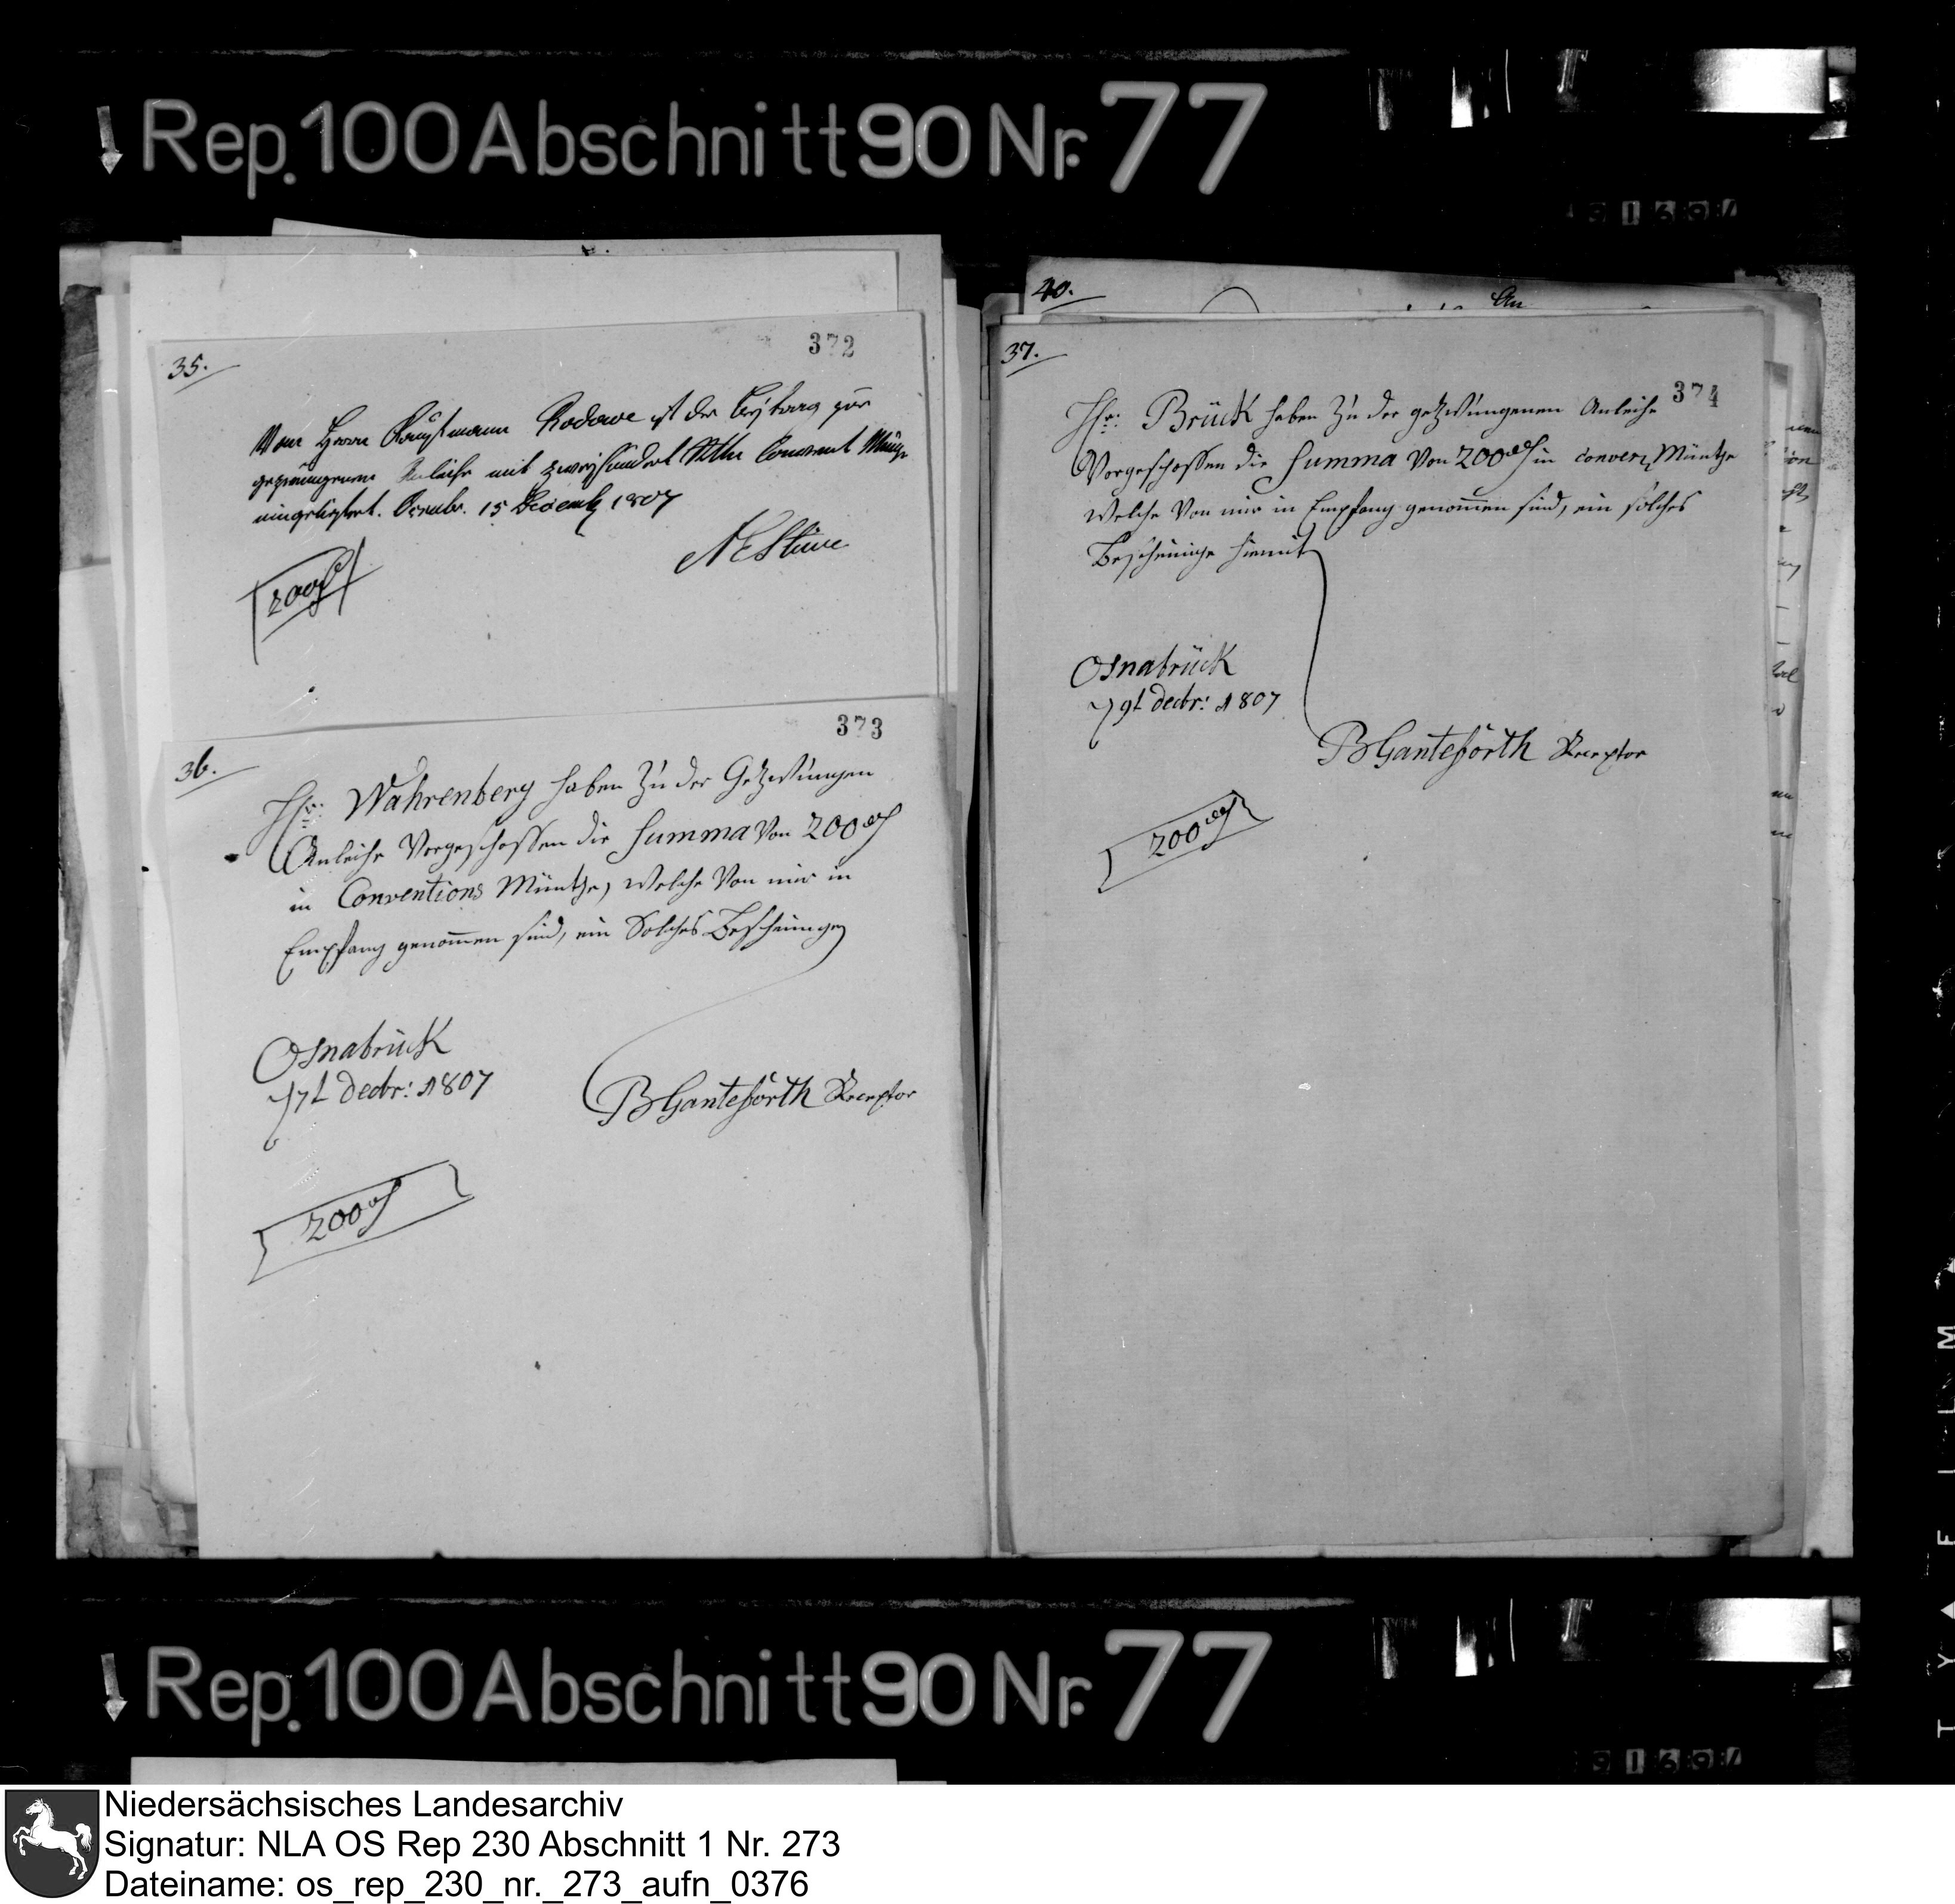 Rep. 100 Abschnitt 90 Nr. 77
35.
372
Vom Herrn Kaufmann Rodowe ist der Beytrag zur
gezwungenen Anleihe mit zweyhundert Rthlr Convent Münze
eingeliefert. Osnabr. 15 Decemb 1807
200
373
36.
Hr: Wahrenberg haben Zu der Gezwungen
Anleihe Vorgeschossen die Summa Von 200
in Conventions Müntze, welche Von mir in
Empfang genom̄en sind, ein Solches Bescheinige
Osnabrück
17t Decbr: 1807
B Ganteförth Receptor
200
40.
An
37.
374
Hr: Brück haben Zu der gezwungenen Anleihe
Vorgeschossen die Summa Von 200 in conven Müntze
welche Von mir in Empfang genom̄en sind, ein solches
Bescheinige hiemit
Osnabrück
19t Decbr: 1807
B Ganteförth Receptor
200
Rep. 100 Abschnitt 90 Nr. 77
Niedersächsisches Landesarchiv
Signatur: NLA OS Rep 230 Abschnitt 1 Nr. 273
Dateiname: os_rep_230_nr._273_aufn_0376